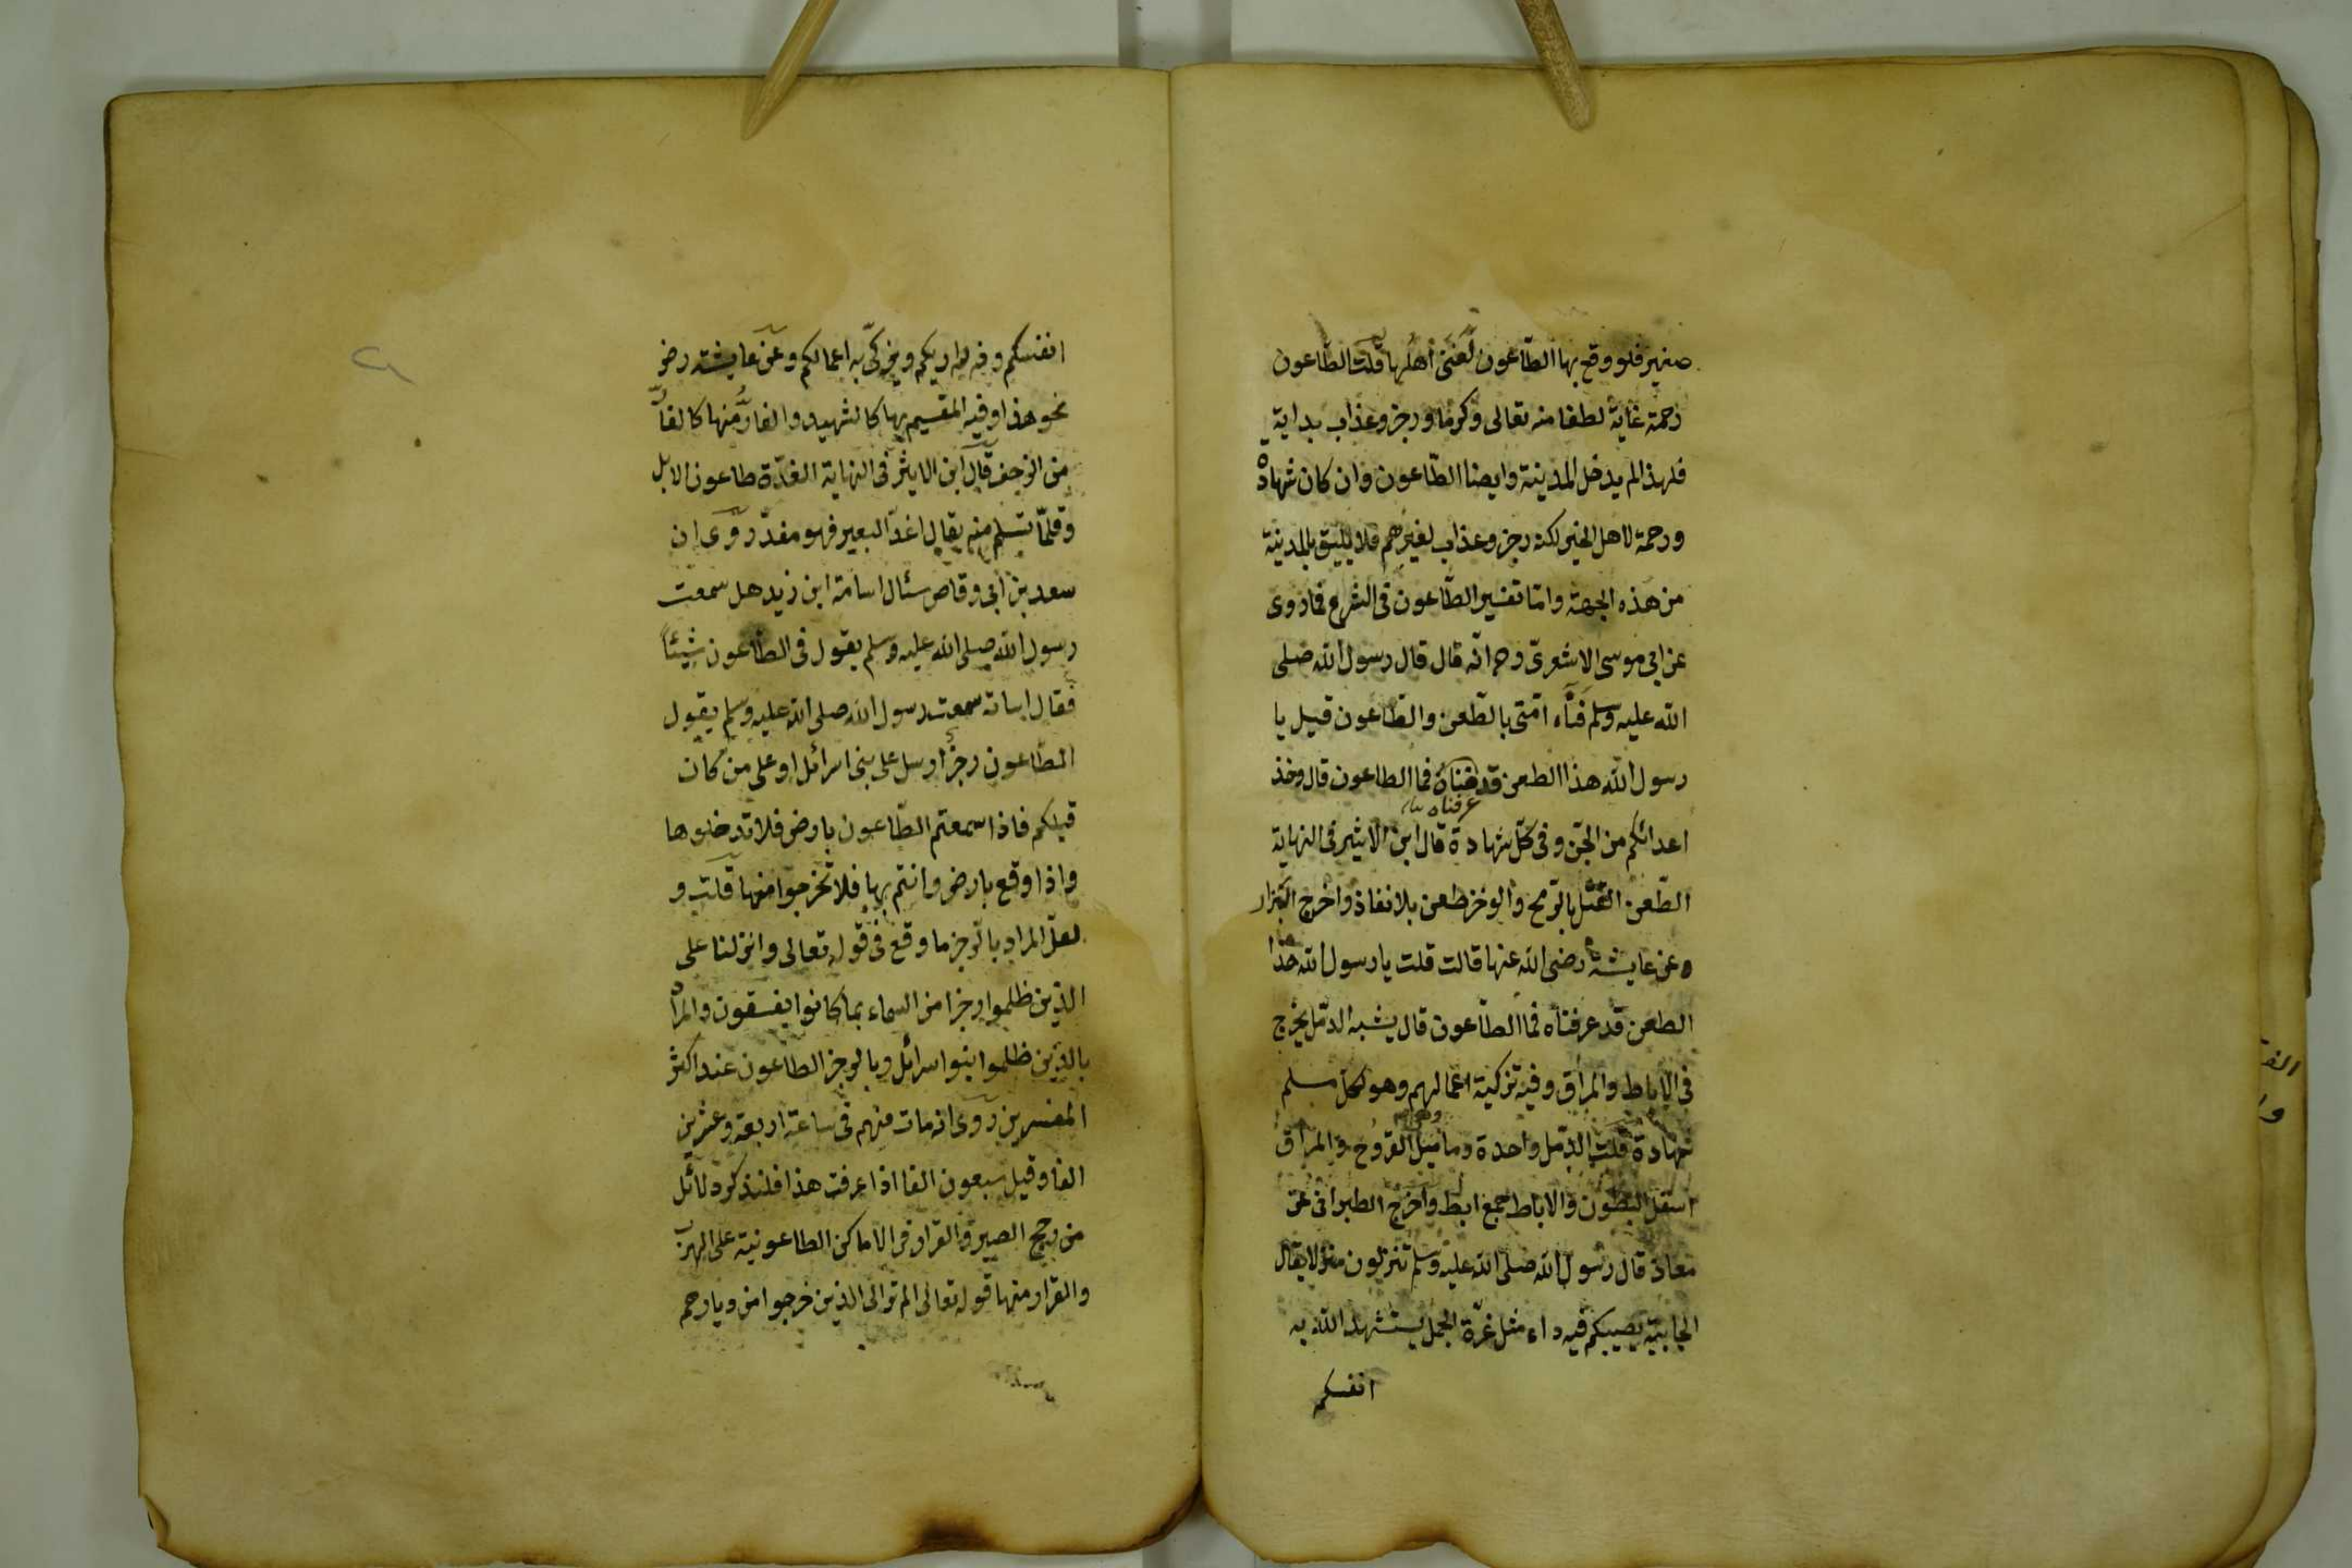 صغير فلو وقع بها الطّاعون لفنى اهلها قلت الطّاعون
رحمة غاية لطفا منه تعالى وكرما ورجز وعذاب بداية
فلهذا لم يدخل المدينة وايضا الطّاعون وان كان شهادة
ورحمة لاهل الخير لكنه رجز وعذاب لغيرهم فلا يليق بالمدينة
من هذه الجهة وامّا تفسير الطّاعون فى الشرع فما روى
عن ابى موسى الاشعرىّ رح انّه قال قال رسول الله صلى
الله عليه وسلم فناء امّتى بالطّعن والطّاعون قيل يا
رسول الله هذا الطعن قد فناه فما الطاعون قال وخذ
عرفناه
اعدائكم من الجنّ وفى كلّ شهادة قال ابن الاثير فى النهاية
الطّعن القتل بالرّمح والوخز طعن بلا نفاذ واخرج البزار
وعن عايشة رضى الله عنها قالت قلت يا رسول الله هذا
الطعن قد عرفناه فما الطّاعون قال يشبه الدمّل يخرج
فى الاباط والمراق وفيه تزكية اعمالهم وهو لكل مسلم
شهادة قلت الدمّل واحدة وماميل القروح والمراق
اسفل البطون والاباط جمع ابط واخرج الطبرانى عن
معاذ قال رسول الله صلى الله عليه وسلم تنزلون منزلا يقال
الجابية يصيبكم فيه داء مثل غرّة الجمل يستشهد الله به
انفسكم
انفسكم وفيه لذراريكم ويزكّى به اعمالكم وعن عايشة رضى
نحو هذا وفيه المقيم بها كالشهيد والفارّ منها كالفارّ
من الزحف قال ابن الاثير فى النهاية الغدّة طاعون الابل
وقلّما تسلم منه يقال اغدّ البعير فهو مغدّ روى ان
سعد بن ابى وقاص سئال اسامة ابن زيد هل سمعت
رسول الله صلى الله عليه وسلم يقول فى الطّاعون شيئاً
فقال اسامة سمعت رسول الله صلى الله عليه وسلم يقول
الطّاعون رجز ارسل على بنى اسرائل او على من كان
قبلكم فاذا سمعتم الطّاعون بارض فلا تدخلوها
واذا وقع بارض وانتم بها فلا تخرجوا منها قلت و
لعلّ المراد بالرجز ما وقع فى قوله تعالى وانزلنا على
الذين ظلموا رجزا من السماء بما كانوا يفسقون والمراد
بالذين ظلموا بنوا اسرائل وبالرجز الطاعون عند اكثر
المفسرين روى انه مات منهم فى ساعة اربعة وعشرين
الفا وقيل سبعون الفا اذا عرفت هذا فلنذكر دلائل
من رجح الصبر والقرار فى الاماكن الطاعونية على الهرب
والفرار منها قوله تعالى الم تر الى الذين خرجوا من ديارهم